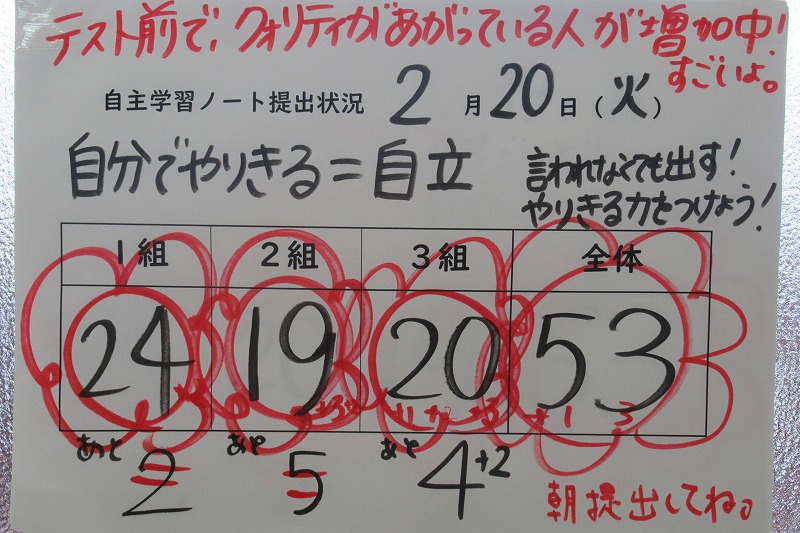 テスト前で、クォリティがあがっている人が増加中!
すごいよ。
自主学習ノート提出状況 2月20日(火)
自分でやりきる=自立
言われなくても出す!
やりきる力をつけよう!
1組 2組 3組 全体
24 19 20 53
あと2 あと5 あと4+2
朝提出してね。